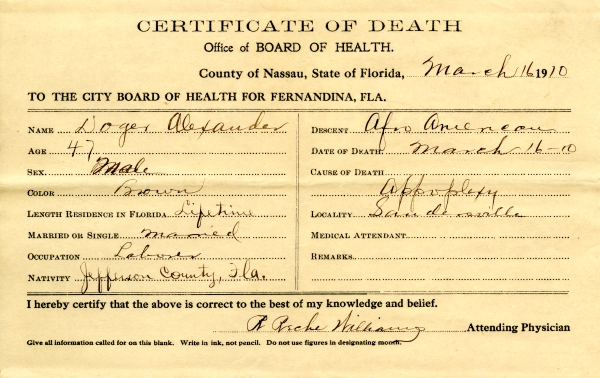 CERTIFICATE OF DEATH
Office of BOARD OF HEALTH.
County of Nassau, State of Florida, March 16 1910
TO THE CITY BOARD OF HEALTH FOR FERNANDINA, FLA.
NAME Doger Alexander
AGE 47
SEX. Male
COLOR Brown
LENGTH RESIDENCE IN FLORIDA Lifetime
MARRIED OR SINGLE Married
OCCUPATION Laborer
NATIVITY Jefferson County, Fla.
DESCENT Afro American
DATE OF DEATH March 16-10
CAUSE OF DEATH
Appoplexy
LOCALITY Sandersville
MEDICAL ATTENDANT
REMARKS
I hereby certify that the above is correct to the best of my knowledge and belief.
Williams Attending Physician
Give all information called for on this blank. Write in ink, not pencil. Do not use figures in designating month.